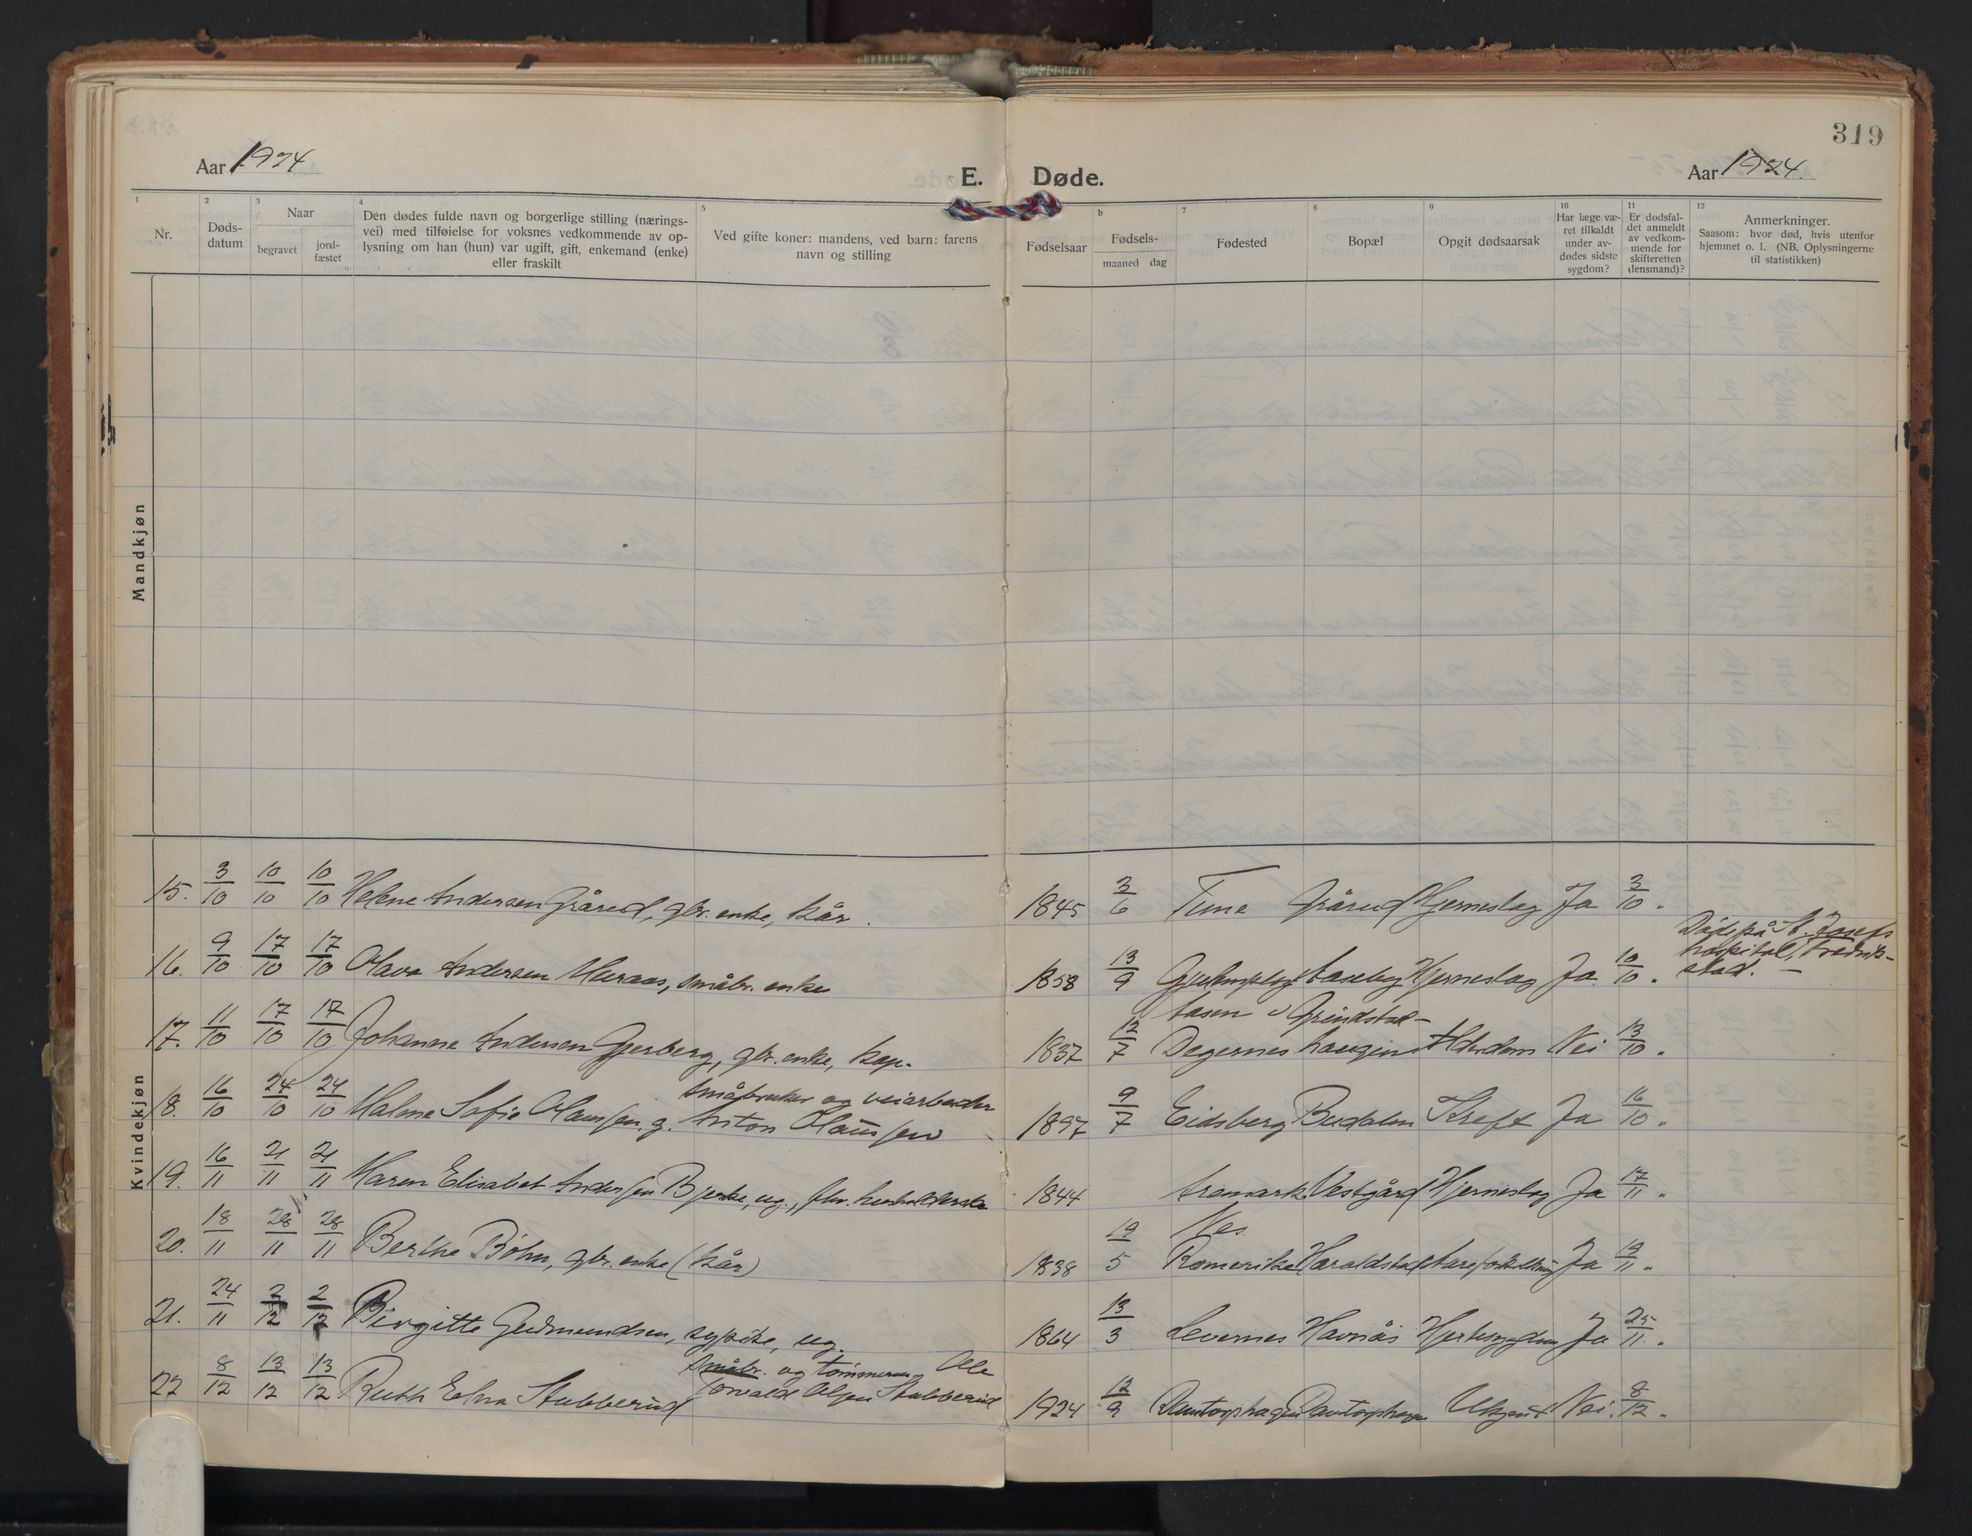 319
Aar 1924
E. Døde.
Aar 1924.
1 2 3 4 5 b 7 8 9 10 11 12
Nr.
Døds-
datum
Naar
begravet
jord-
fæstet
Den dødes fulde navn og borgerlige stilling (nærings-
vei) med tilføielse for voksnes vedkommende av op-
lysning om han (hun) var ugift, gift, enkemand (enke)
eller fraskilt
Ved gifte koner: mandens, ved barn: farens
navn og stilling
Fødselsaar
Fødsels-
maaned dag
Fødested
Bopæl
Opgit dødsaarsak
Har læge væ-
ret tilkaldt
under av-
dødes sidste
sygdom?
Er dødsfal-
det anmeldt
av vedkom-
mende for
skifteretten
(lensmand)?
Anmerkninger.
Saasom: hvor død, hvis utenfor
hjemmet o. l. (NB. Oplysningerne
til statistikken)
Mandkjøn
Kvindekjøn
15. 3/10 10/10 10/10 Helene Andersen Grårud, gbr. enke, kår. 1845 3/6 Tune Grårud Hjerneslag Ja 3/10.
16. 9/10 17/10 17/10 Olava Andersen småbr. enke 1858 13/9 Hjerneslag Ja 10/10. Død på St. Josefs
hospital, Fredrik-
stad. –
Aasen i Grindstad-
17. 11/10 17/10 17/10 Johanne Andersen Gjerberg, gbr. enke, 1837 12/7 Degernes haugen Alderdom Nei 13/10.
småbruker og veiarbeider
18. 16/10 24/10 24/10 Sofie Olaussen, g. Anton Olaussen 1897 9/7 Eidsberg Budalen Kreft Ja 16/10.
19. 16/11 21/11 21/11 Maren Elisabet Anderssen Bjerke, ug., fhv. husholderske 1844 Aremark Vestgård Hjerneslag Ja 17/11.
Nes
20. 18/11 28/11 28/11 Berthe Bøhn, gbr. enke (kår) 1838 19/5 Romerike Haraldstad Aareforkalkning Ja 19/11.
21. 24/11 2/12 2/12 Birgitte Gudmundsen, sypike, ug. 1864 13/3 Levernes Havnås Ja 25/11.
småbr. og tømmerm. Ole
22 8/12 13/12 13/12 Ruth Edna Stubberud Torvald Olsen Stubberud 1924 12/9 Ukjent Nei. 8/12.